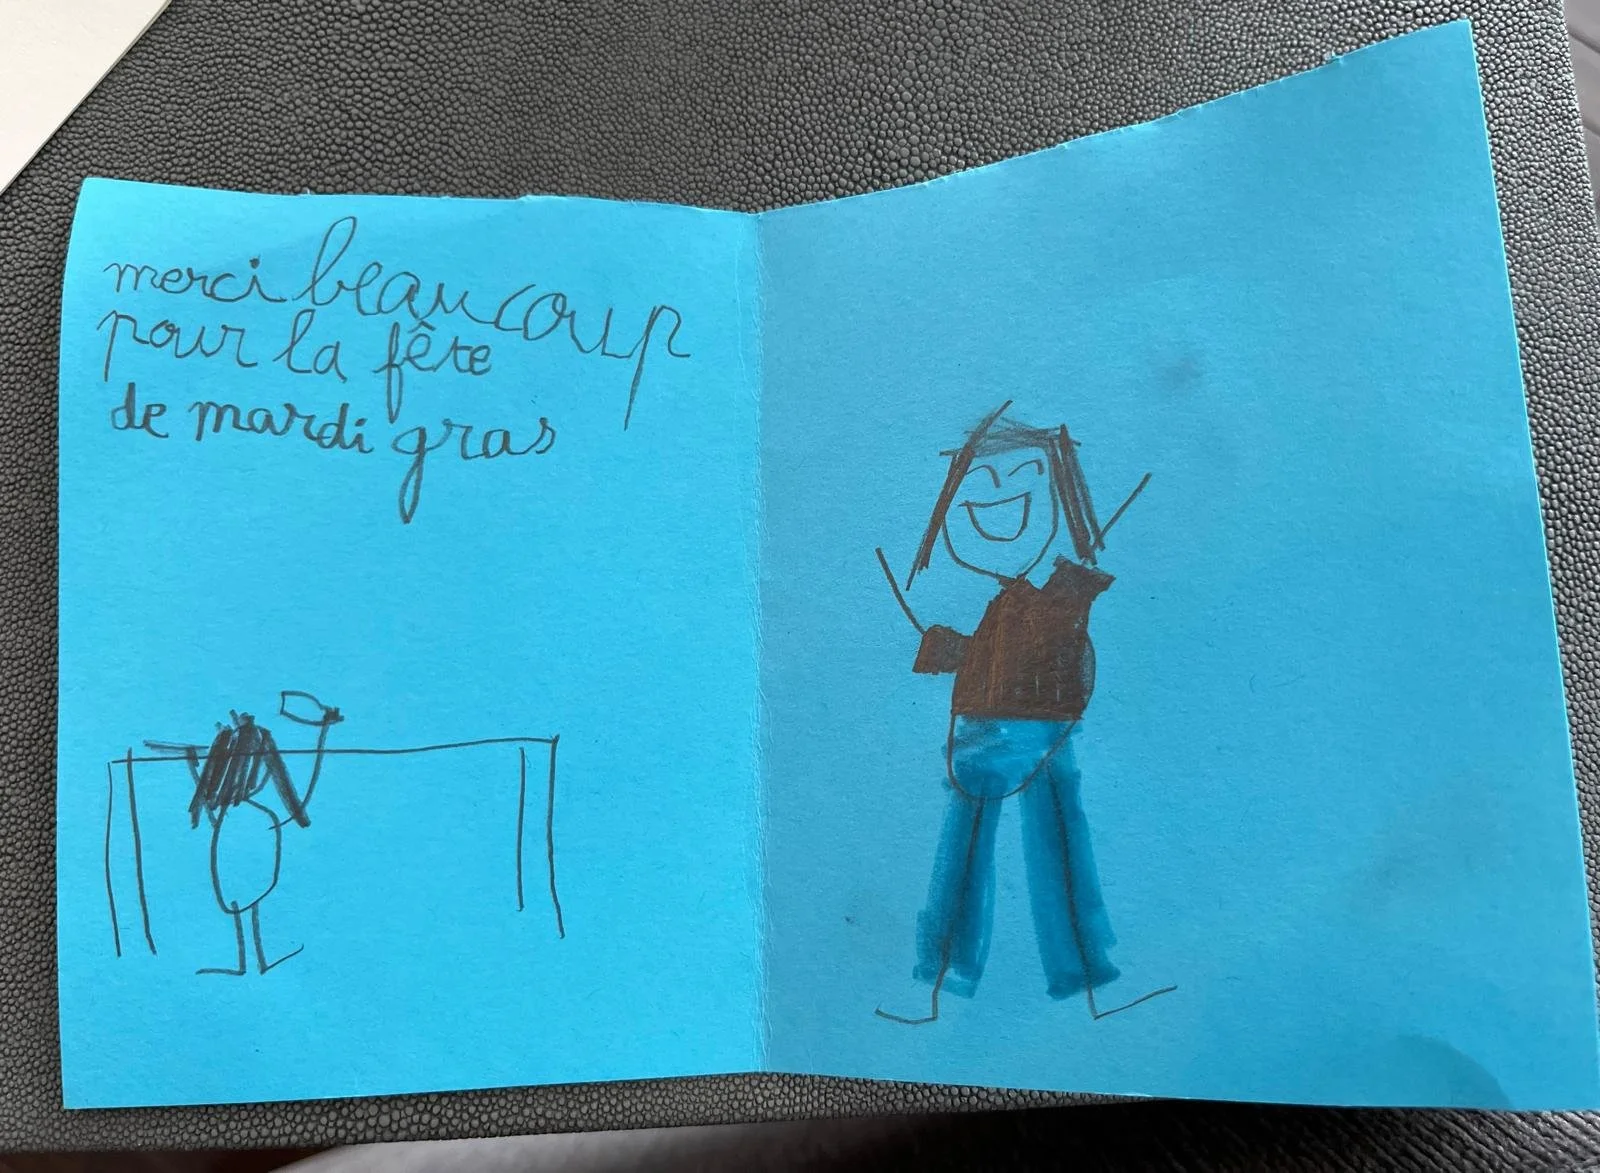 merci beaucoup
pour la fête
de mardi gras